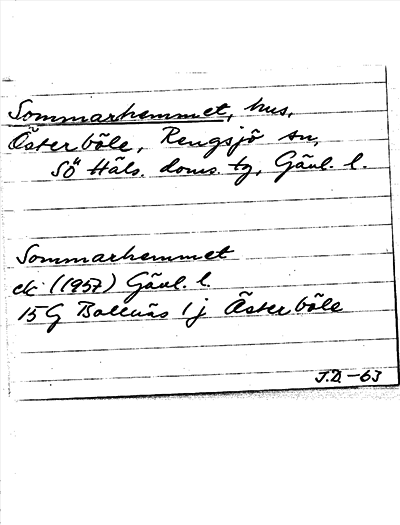 Sommarhemmet, hus,
Österböle, Rengsjö sn,
Sö Häls. doms. tg, Gävl. l.
Sommarhemmet
ek (1957) Gävl. l.
15 G Bollnäs 1 j Österböle
J.D. -63